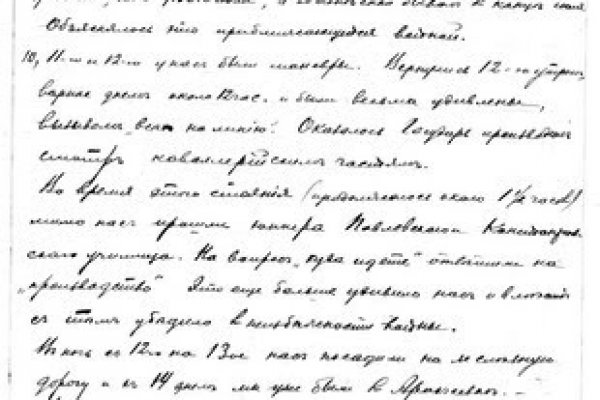 Объяснялось это приближающейся войной.
10, 11-го и 12-го у нас были маневры. Вернулись 12-го утром,
днем около 12 час. и были весьма удивлены,
вызывом „всех на линию“. Оказалось Государь производит
смотр кавалерийским частям.
Во время этого стояния (продолжалось около 1½ часов)
мимо нас прошли юнкера Павловского и Константинов-
ского училища. На вопрос „куда идете“ отвечали на
„производство“ Это еще больше удивило нас и
с тем убедило в неизбежности войны.
В ночь с 12-го на 13-ое нас посадили на железную
дорогу и с 14 днем мы уже были в